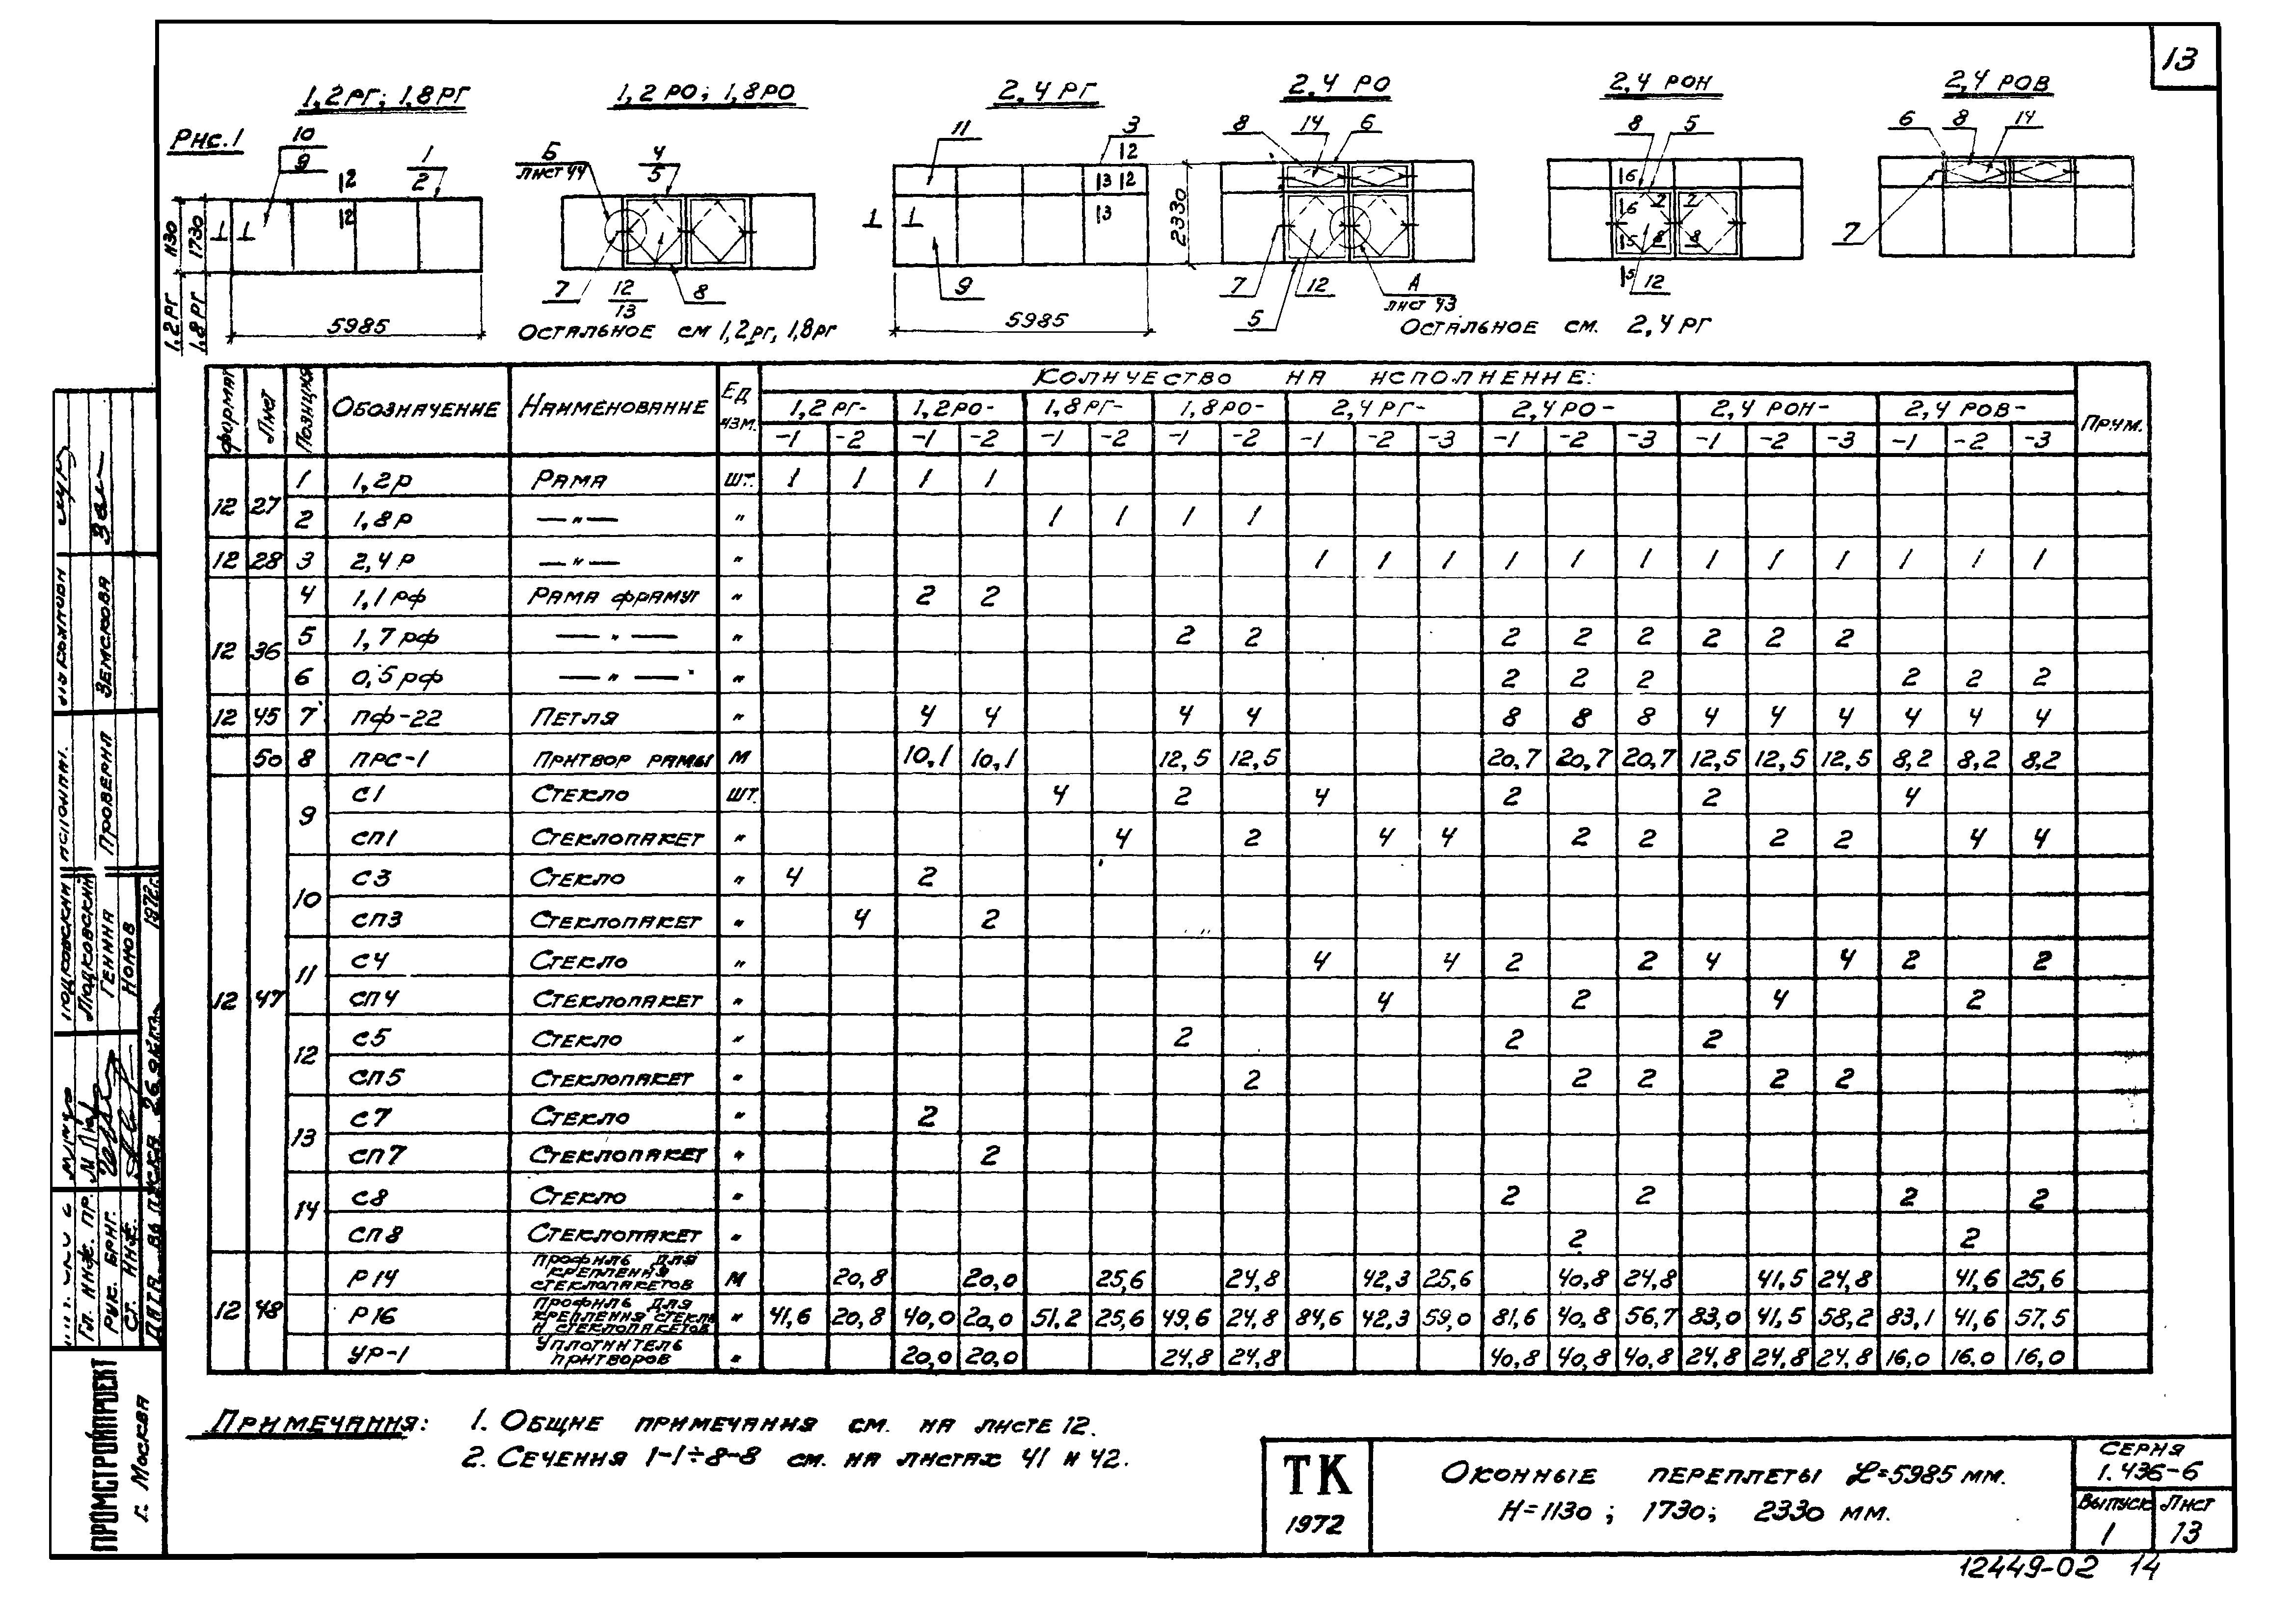 13
1,2 РГ; 1,8 РГ
1,2 РО; 1,8 РО
2,4 РГ
2,4 РО
2,4 РОН
2,4 РОВ
Рис. 1
10
9
1
2
12
12
1130
1730
1,2 РГ
1,8 РГ
5985
Б
лист 44
4
5
7
12
13
8
Остальное см 1,2 рг, 1,8 рг
11
3
12
13 12
13
1 1
9
2330
5985
8 14 6
7
5
12
А
лист 43
8 5
16
16 2 2
15 8 8
15 12
Остальное см. 2,4 рг
6 8 14
7
Формат Лист Позиция Обозначение Наименование Ед. изм. Количество на исполнение: Прим.
1,2 рг- 1,2 ро- 1,8 рг- 1,8 ро- 2,4 рг- 2,4 ро- 2,4 рон- 2,4 ров-
-1 -2 -1 -2 -1 -2 -1 -2 -1 -2 -3 -1 -2 -3 -1 -2 -3 -1 -2 -3
12 27 1 1,2р Рама шт. 1 1 1 1
2 1,8р —„— „ 1 1 1 1
12 28 3 2,4р —„— „ 1 1 1 1 1 1 1 1 1 1 1 1
12 36 4 1,1рф Рама фрамуг „ 2 2
5 1,7рф —„— „ 2 2 2 2 2 2 2 2
6 0,5рф —„— „ 2 2 2 2 2 2
12 45 7 ПФ-22 Петля „ 4 4 4 4 8 8 8 4 4 4 4 4 4
50 8 ПРС-1 Притвор рамы М 10,1 10,1 12,5 12,5 20,7 20,7 20,7 12,5 12,5 12,5 8,2 8,2 8,2
12 47 9 С1 Стекло шт. 4 2 4 2 2 4
СП1 Стеклопакет „ 4 2 4 4 2 2 2 2 4 4
10 С3 Стекло „ 4 2
СП3 Стеклопакет „ 4 2
11 С4 Стекло „ 4 4 2 2 4 4 2 2
СП4 Стеклопакет „ 4 2 4 2
12 С5 Стекло „ 2 2 2
СП5 Стеклопакет „ 2 2 2 2 2
13 С7 Стекло „ 2
СП7 Стеклопакет „ 2
14 С8 Стекло „ 2 2 2 2
СП8 Стеклопакет „ 2 2
12 48 Р14 Профиль для крепления стеклопакетов М 20,8 20,0 25,6 24,8 42,3 25,6 40,8 24,8 41,5 24,8 41,6 25,6
Р16 Профиль для крепления стекла и стеклопакетов „ 41,6 20,8 40,0 20,0 51,2 25,6 49,6 24,8 84,6 42,3 59,0 81,6 40,8 56,7 83,0 41,5 58,2 83,1 41,6 57,5
УР-1 Уплотнитель притворов „ 20,0 20,0 24,8 24,8 40,8 40,8 40,8 24,8 24,8 24,8 16,0 16,0 16,0
Примечания: 1. Общие примечания см. на листе 12.
2. Сечения 1-1÷8-8 см. на листах 41 и 42.
ТК
1972
Оконные переплеты L=5985 мм.
H=1130; 1730; 2330 мм.
Серия
1.436-6
Выпуск Лист
1 13
12449-02 14
Земскова
Проверил
Людковский
Генина
Номов
Гл. инж. пр.
Рук. бриг.
Ст. инж.
Дата выпуска 26 окт. 1972г.
ПРОМСТРОЙПРОЕКТ
г. Москва